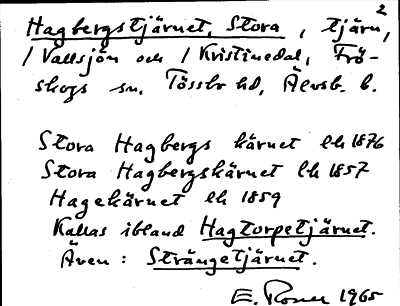 2
Hagbergstjärnet, Stora, tjärn,
/ Vallsjön och / Kristinedal, Frö-
skogs sn, Tössbo hd, Älvsb. l.
Stora Hagbergs kärnet lk 1876
Stora Hagbergskärnet lk 1857
Hagekärnet lk 1859
Kallas ibland Hagtorpetjärnet.
Även: Strängetjärnet.
E. 1965